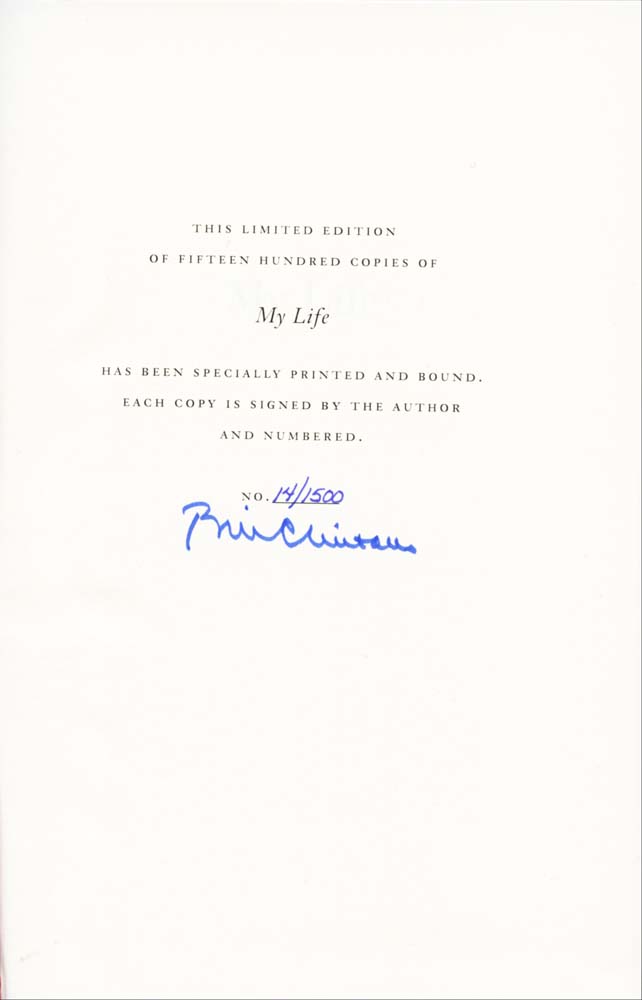 THIS LIMITED EDITION
OF FIFTEEN HUNDRED COPIES OF
My Life
HAS BEEN SPECIALLY PRINTED AND BOUND.
EACH COPY IS SIGNED BY THE AUTHOR
AND NUMBERED.
NO. 14/1500
Bill Clinton